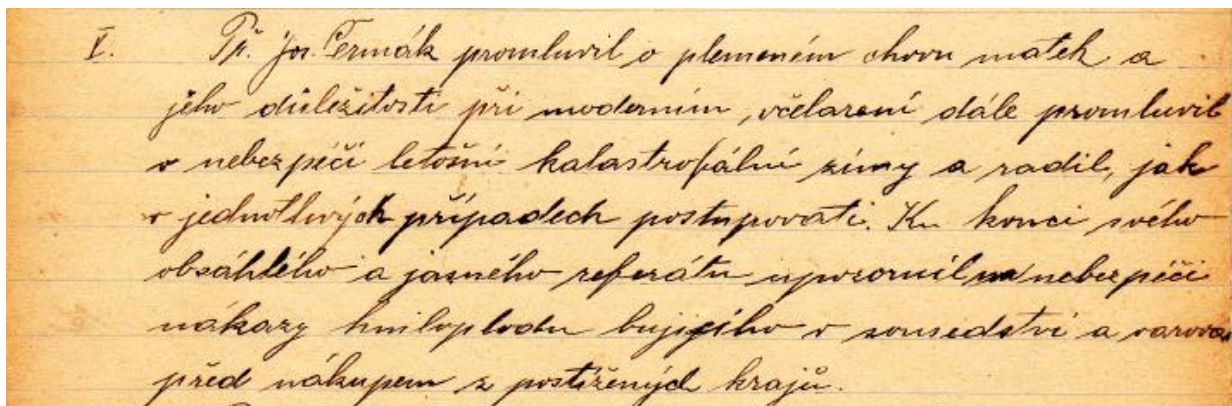 V. Př. Jos. Čermák promluvil o plemeném chovu matek a
jeho důležitosti při moderním, včelaření dále promluvil
o nebezpečí letošní katastrofální zimy a radil, jak
v jednotlivých případech postupovati. Ku konci svého
obsáhlého a jasného referátu upozornil na nebezpečí
nákazy hniloplodu bujícího v sousedství a varoval
před nákupem z postižených krajů.